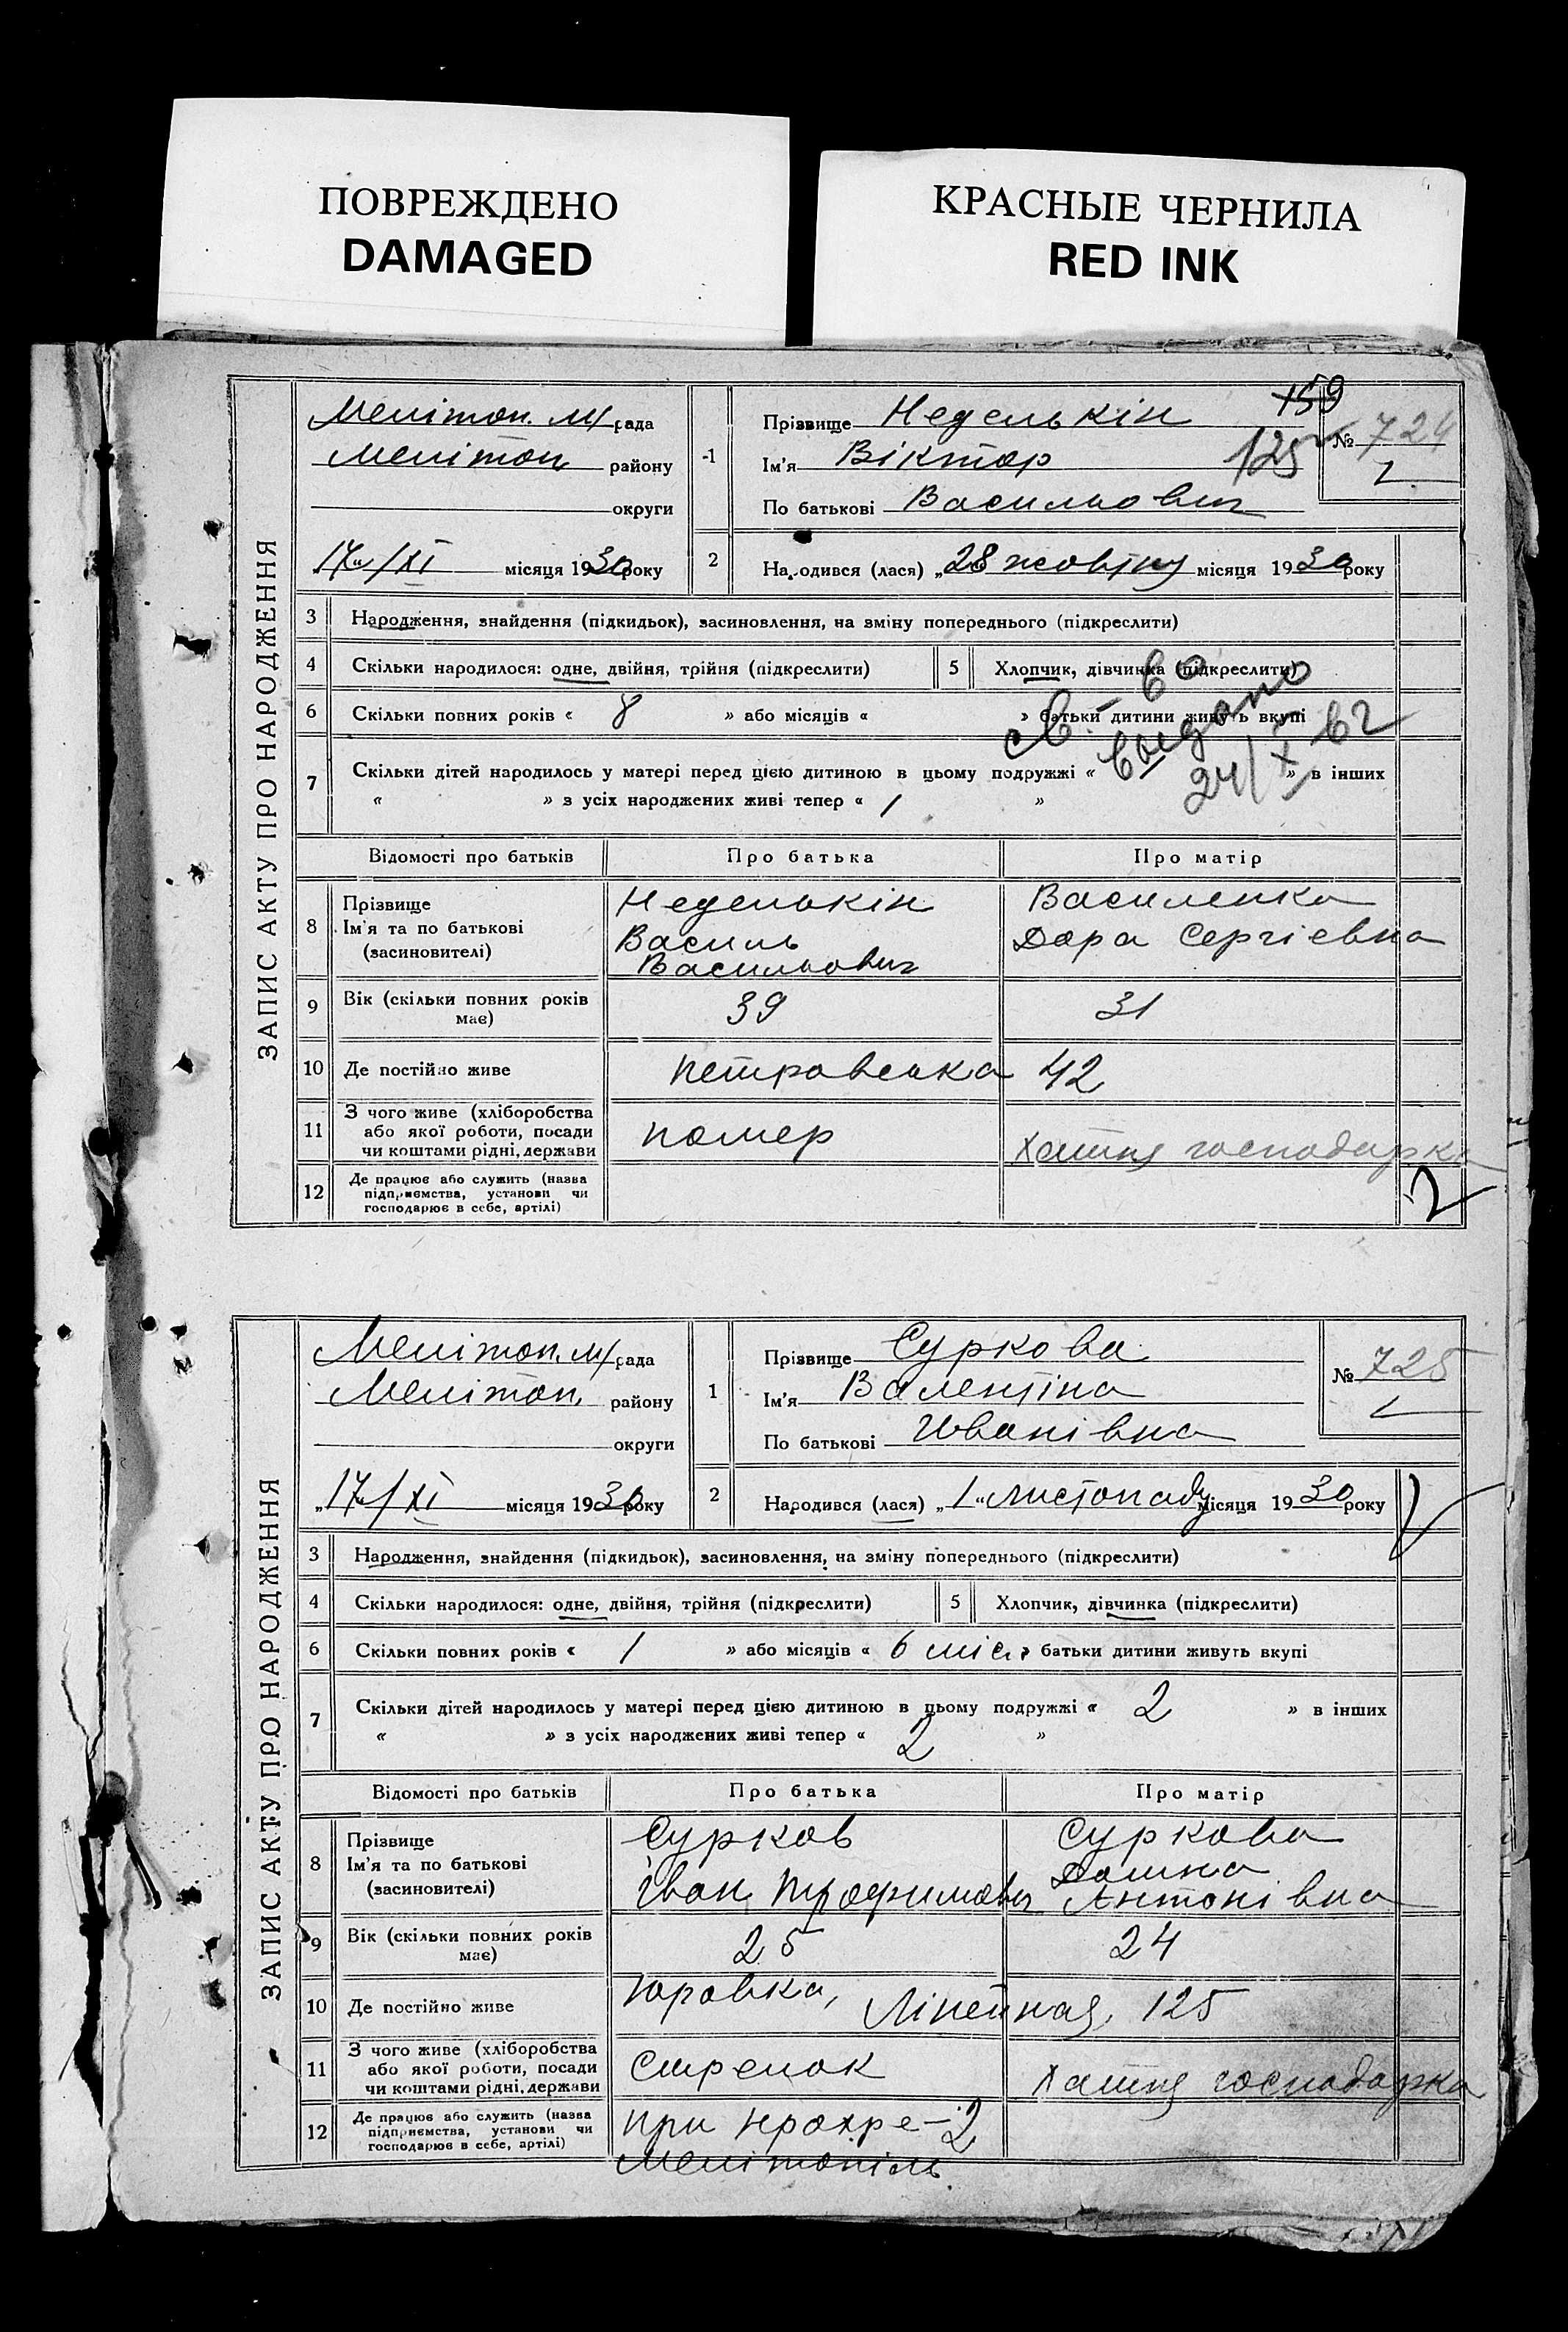 ПОВРЕЖДЕНО
DAMAGED
КРАСНЫЕ ЧЕРНИЛА
RED INK
ЗАПИС АКТУ ПРО НАРОДЖЕННЯ
Меліtoп. м/рада
Меліtoп. району
округи
„17“/XI місяця 1930 року
1
Прізвище Неделькін
Ім'я Віктор
По батькові Васильович
159
125
№ 724
2
Народився (лася) „28 жовтня місяця 1930 року
3 Народження, знайдення (підкидьок), засиновлення, на зміну попереднього (підкреслити)
4 Скільки народилося: одне, двійня, трійня (підкреслити) 5 Хлопчик, дівчинка (підкреслити)
6 Скільки повних років « 8 » або місяців « » батьки дитини живуть вкупі
св-во
выдано
24/X 62
7 Скільки дітей народилось у матері перед цією дитиною в цьому подружжі « » в інших
« » з усіх народжених живі тепер « 1 »
Відомості про батьків Про батька Про матір
8 Прізвище
Ім'я та по батькові
(засиновителі)
Неделькін
Василь
Васильович
Василенко
Дора Сергіевна
9 Вік (скільки повних років має) 39 31
10 Де постійно живе Петровська 42
11 З чого живе (хліборобства
або якої роботи, посади
чи коштами рідні, держави
помер
Хатня господарка
12 Де працює або служить (назва
підприємства, установи чи
господарює в себе, артілі)
2
ЗАПИС АКТУ ПРО НАРОДЖЕННЯ
Меліtoп. м/рада
Меліtoп. району
округи
„17“/XI місяця 1930 року
1
Прізвище Суркова
Ім'я Валентіна
По батькові Иванівна
№ 725
2
Народився (лася) „1“ листопаду місяця 1930 року
3 Народження, знайдення (підкидьок), засиновлення, на зміну попереднього (підкреслити)
4 Скільки народилося: одне, двійня, трійня (підкреслити) 5 Хлопчик, дівчинка (підкреслити)
6 Скільки повних років « 1 » або місяців « 6 міс. » батьки дитини живуть вкупі
7 Скільки дітей народилось у матері перед цією дитиною в цьому подружжі « 2 » в інших
« » з усіх народжених живі тепер « 2 »
Відомості про батьків Про батька Про матір
8 Прізвище
Ім'я та по батькові
(засиновителі)
Сурков
Іван Трофимович
Суркова
Домна
Антонівна
9 Вік (скільки повних років має) 25 24
10 Де постійно живе Юровка, Лінейная, 125
11 З чого живе (хліборобства
або якої роботи, посади
чи коштами рідні, держави
Стрелок
Хатня господарка
12 Де працює або служить (назва
підприємства, установи чи
господарює в себе, артілі)
при 2
Мелітопіль